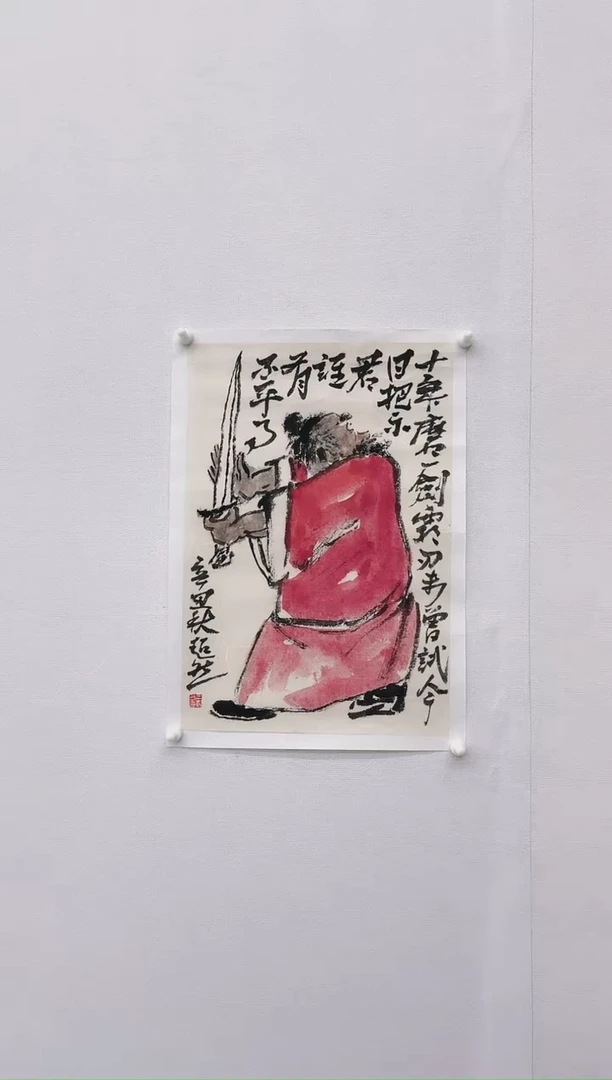 十年磨一劍霜刃未曾試今
日把示
君
誰
有
不平事
辛丑秋超然